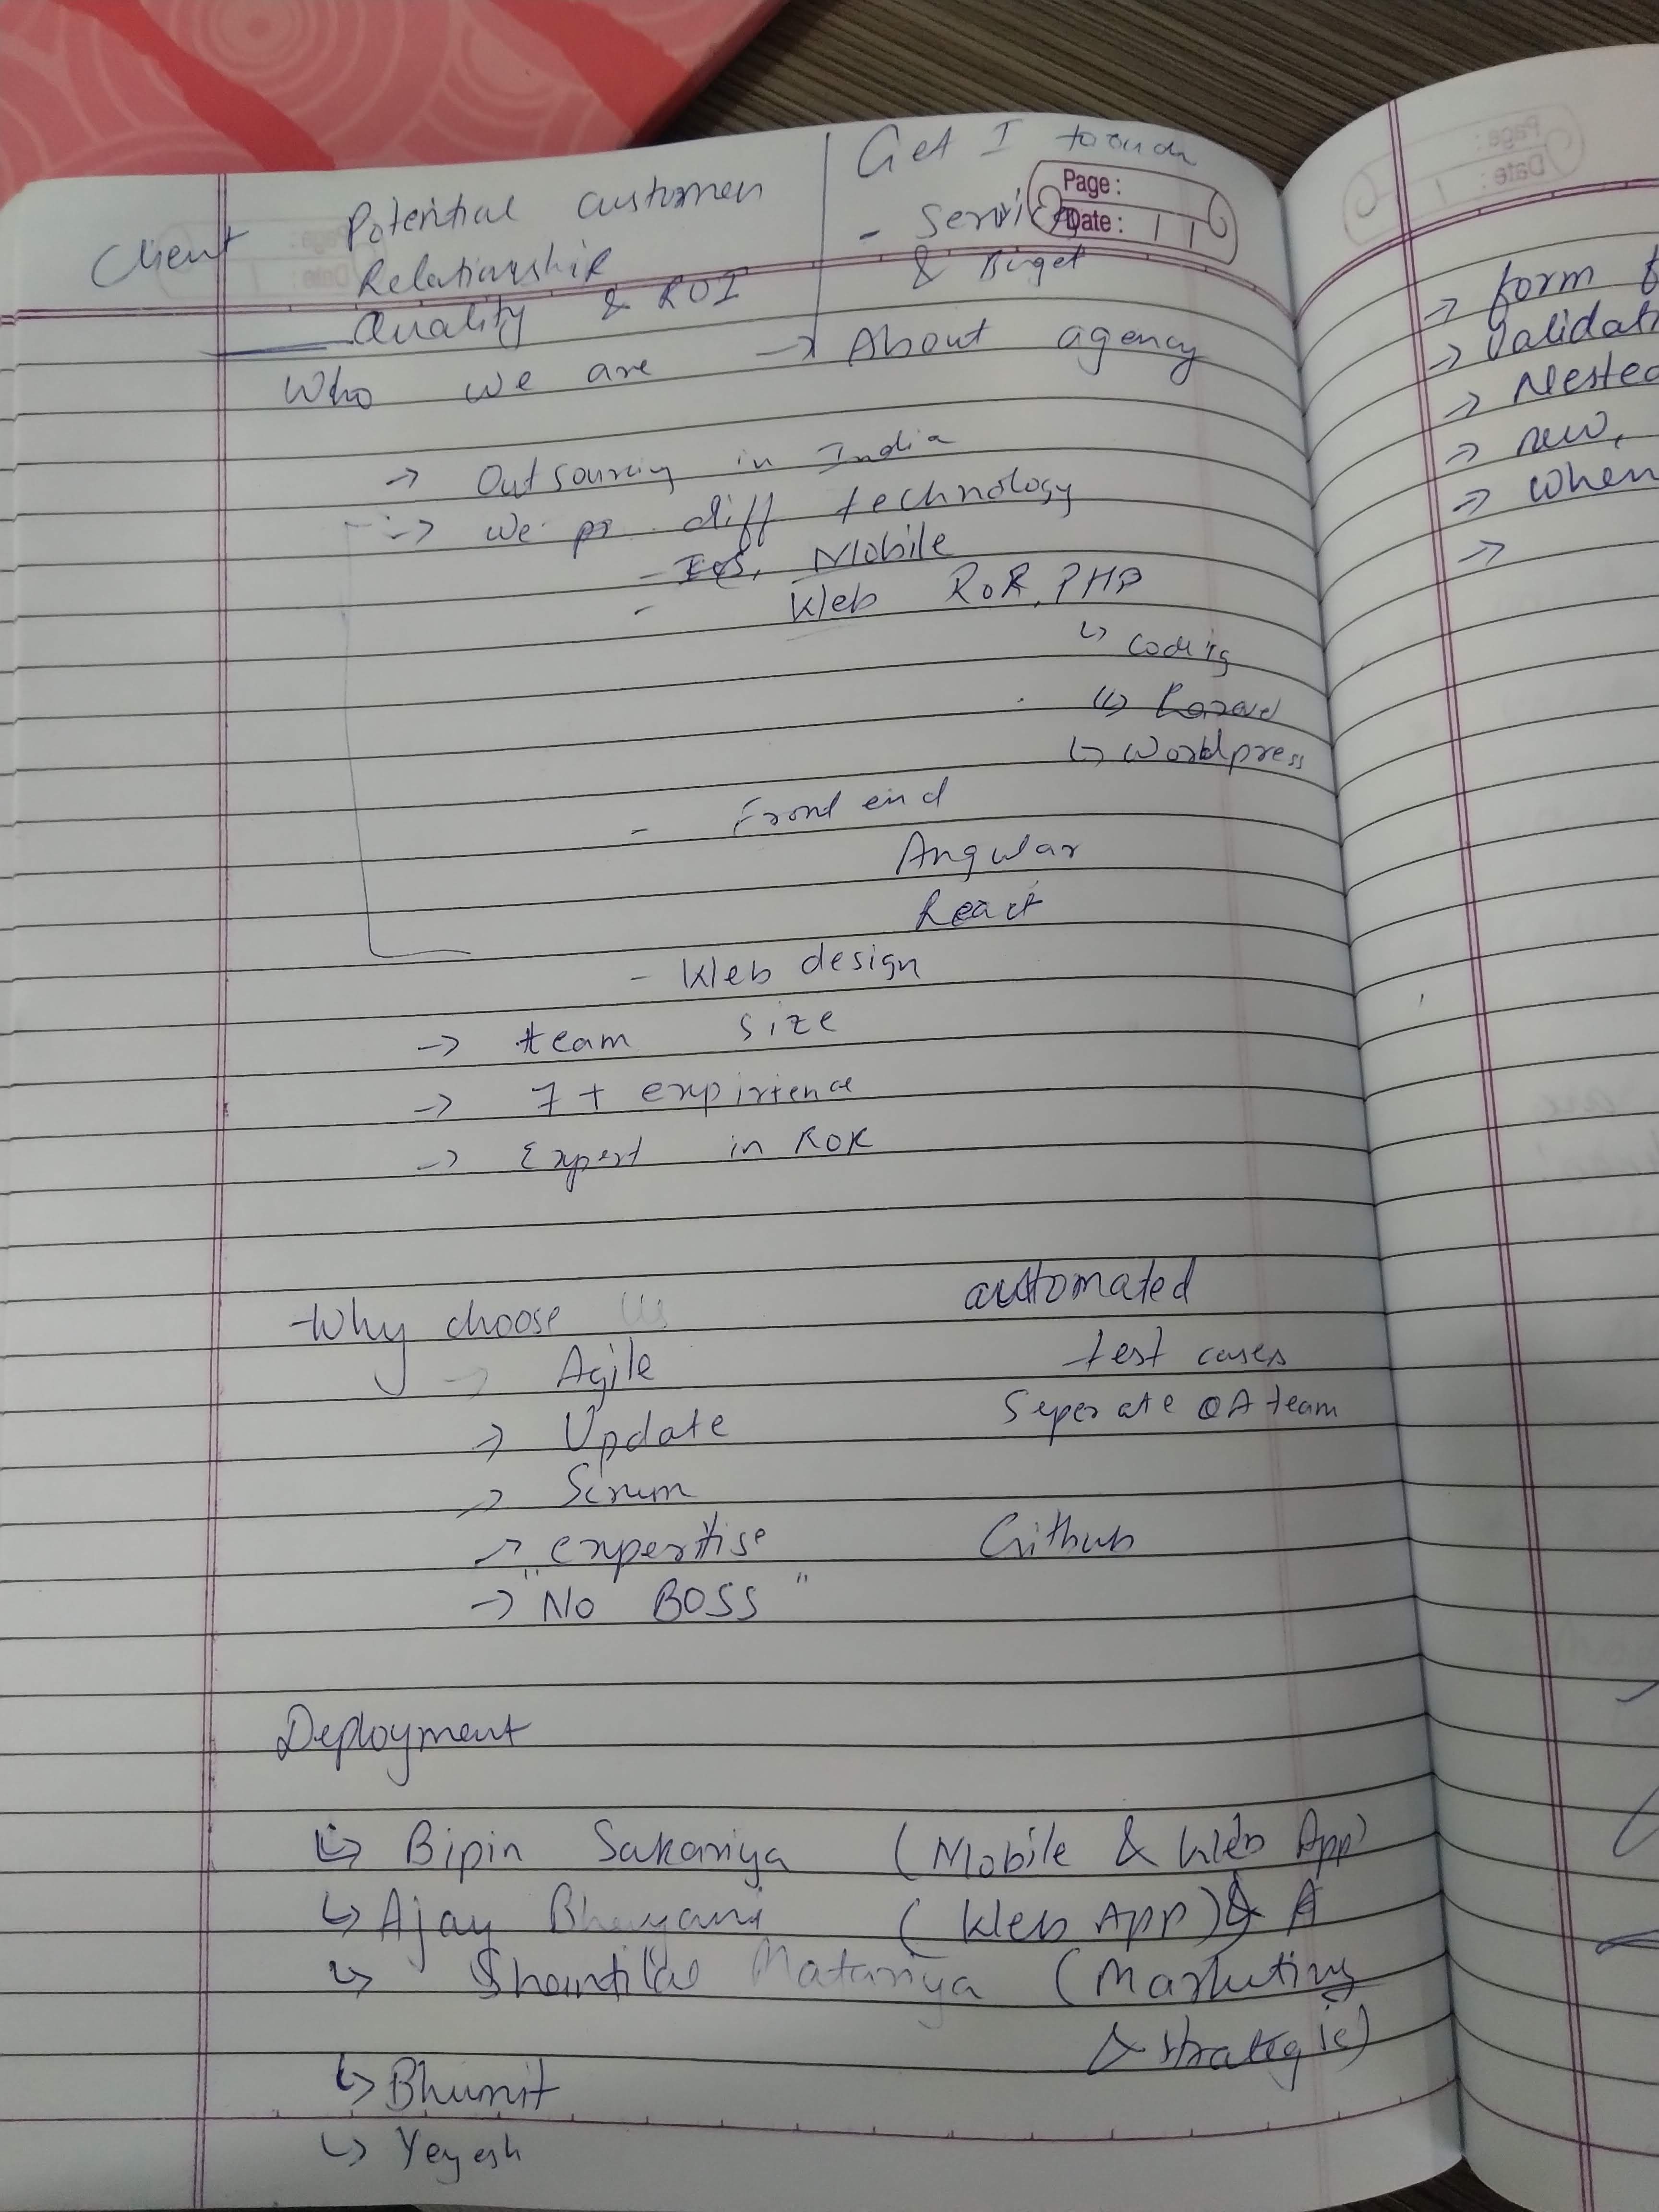 Client
Potential customer
Relationship
Quality & ROI
Get I touch
- Service
& Buget
Page :
Date :
Who we are → About agency
→ Outsourcing in India
→ We diff technology
- Mobile
- Web RoR, PHP
↳ Coding
↳ Wordpress
- Front end
Angular
React
- Web design
→ team size
→ 7 + expirience
→ Expert in ROR
Why choose us
→ Agile
→ Update
→ Scrum
→ expertise
→ "No BOSS"
automated
test cases
Seperate QA team
Github
Deployment
↳ Bipin Sakariya (Mobile & Web App)
↳ Ajay (Web App) & A
↳ Matariya (Marketing
& strategic)
↳ Bhumit
↳ Yeyesh
→ form
→ Validati
→ Nested
→ new,
→ when
→